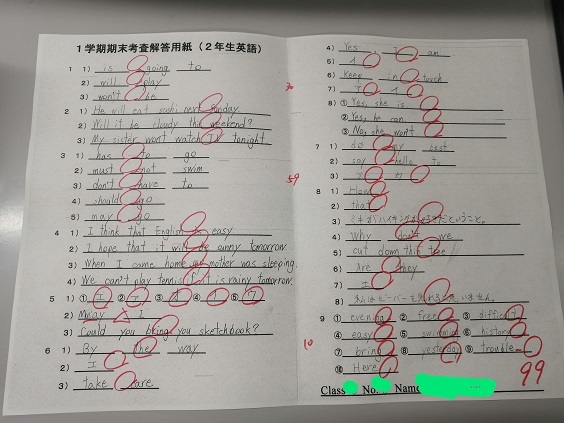 1学期期末考査解答用紙(2年生英語)
1 1) is going to
2) will play
3) won't be
2 1) He will eat sushi next Sunday.
2) Will it be cloudy this weekend?
3) My sister won't watch TV tonight.
3 1) has to go
2) must not swim
3) don't have to
4) should go
5) may go
4 1) I think that English is easy
2) I hope that it will be sunny tomorrow.
3) When I came home my mother was sleeping.
4) We can't play tennis if it is rainy tomorrow.
5 1) ① エ ② ③ ④ ⑤
2) May I
3) Could you bring you sketchbook?
6 1) By the way
2) エ
3) take care
30
59
4) Yes I am
5) イ
6) keep in touch
7) ア イ
8) ① Yes, she is.
② Yes, he can
③ No, she won't
7 1) do my best
2) say hello to
3)
8 1) How
2) that
3)
4) Why don't we
5) cut down this tree
6) Are they
7) エ
8)
9 ① evening ② ③ difficult
④ easy ⑤ swimming ⑥ history
⑦ bring ⑧ yesterday ⑨ trouble
⑩ Here
10
Class No. Name
99